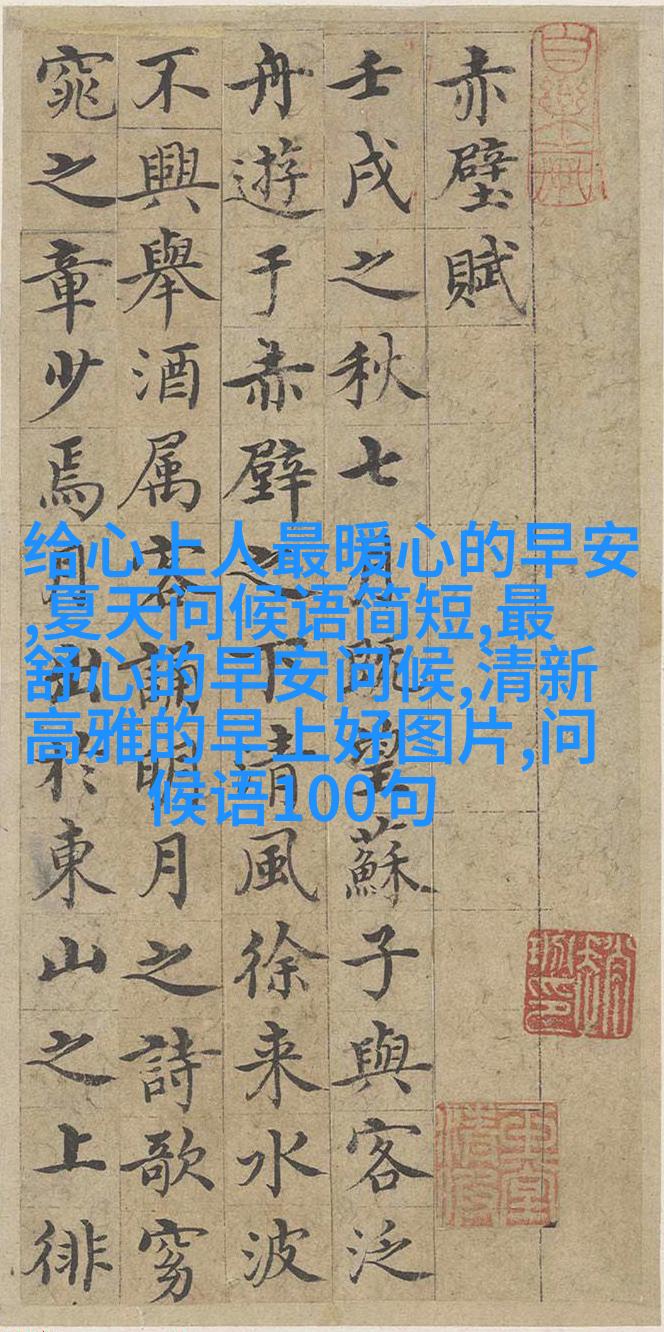 赤壁賦
壬戌之秋七月既望蘇子與客泛
舟遊于赤壁之下清風徐来水波
不興舉酒属客誦明月之詩歌窈
窕之章少焉月出於東山之上徘
给心上人最暖心的早安
,夏天问候语简短,最
舒心的早安问候,清新
高雅的早上好图片,问
候语100句